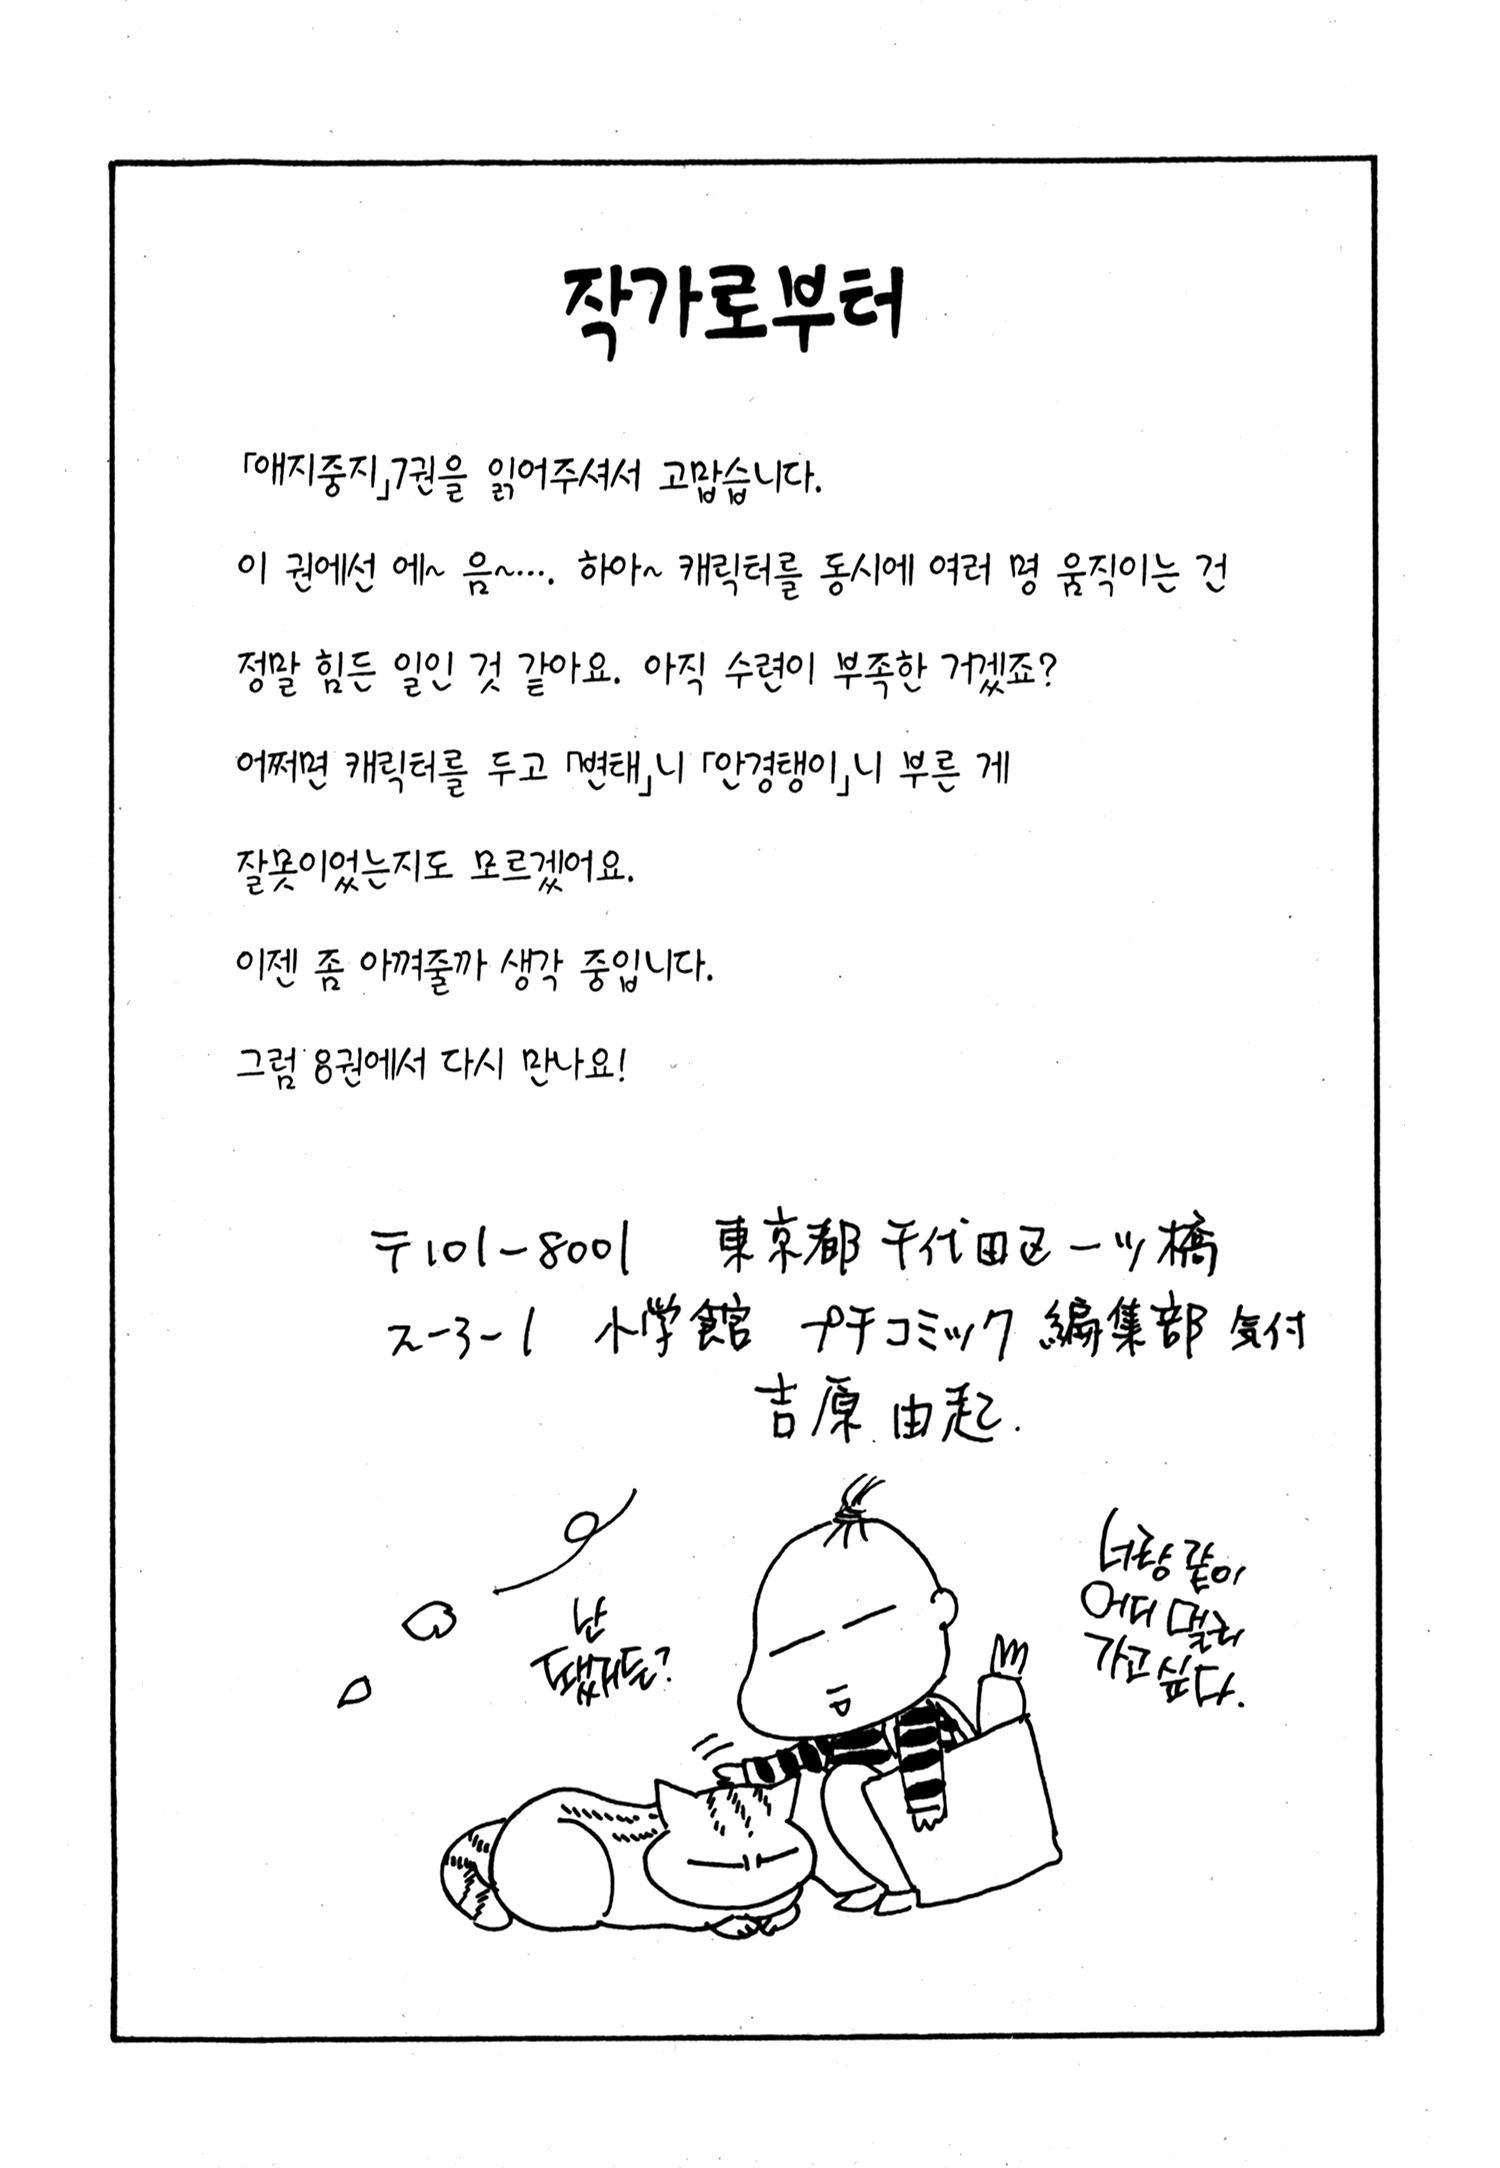 작가로부터
「애지중지」7권을 읽어주셔서 고맙습니다.
이 권에선 에~ 음~…. 하아~ 캐릭터를 동시에 여러 명 움직이는 건
정말 힘든 일인 것 같아요. 아직 수련이 부족한 거겠죠?
어쩌면 캐릭터를 두고 「변태」니 「안경탱이」니 부른 게
잘못이었는지도 모르겠어요.
이젠 좀 아껴줄까 생각 중입니다.
그럼 8권에서 다시 만나요!
〒101-8001 東京都 千代田区一ツ橋
2-3-1 小学館 プチコミック 編集部 気付
吉原 由起.
너랑 같이
어디 멀리
가고 싶다.
난
됐거든?